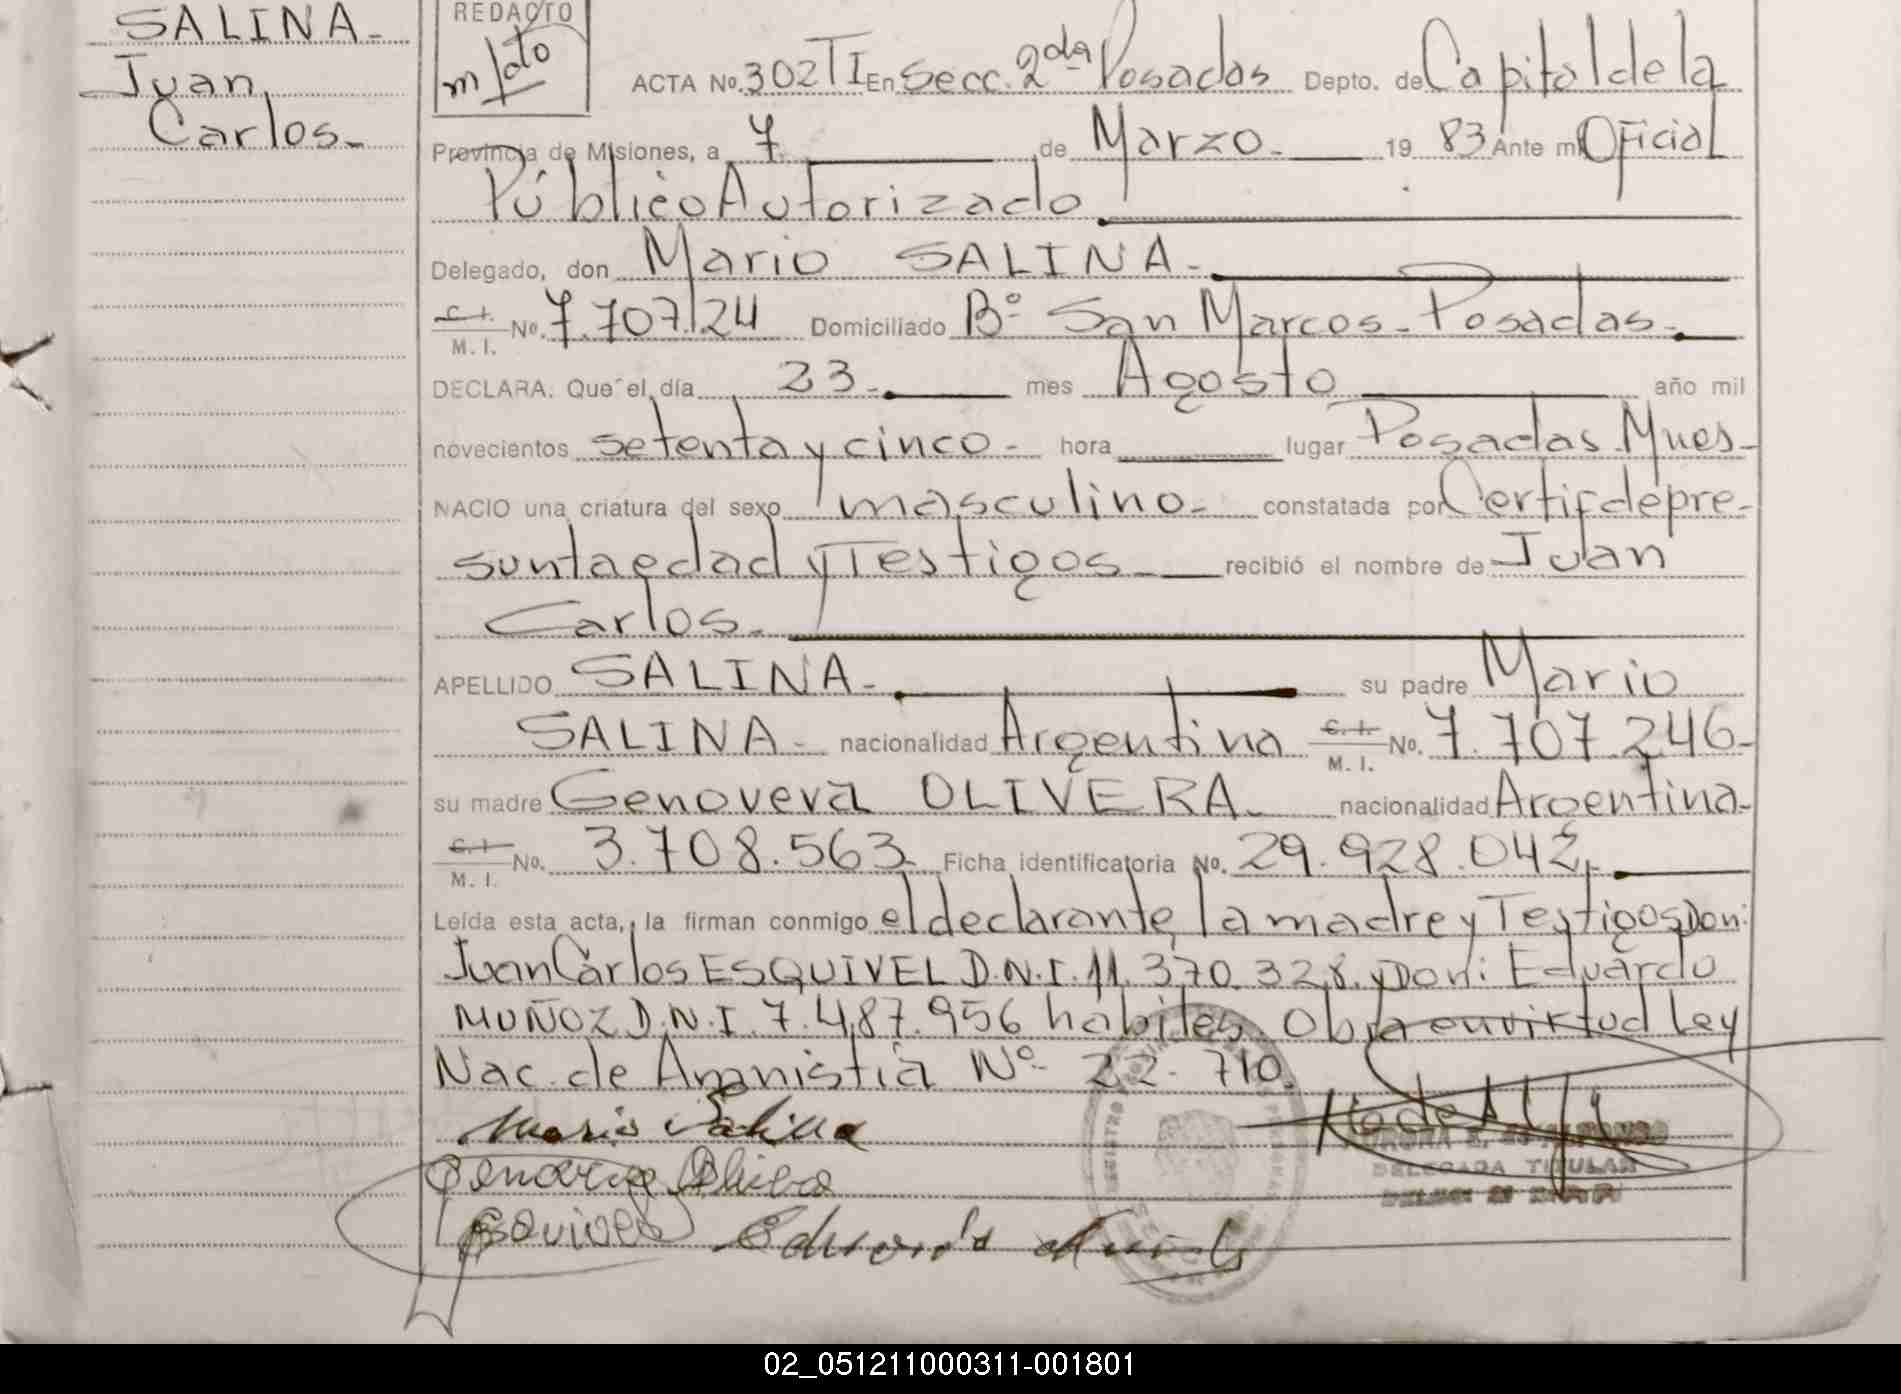 SALINA-
Juan
Carlos-
REDACTO
ACTA No. 302 TI En Secc. 2da Posadas Depto. de Capital de la
Provincia de Misiones, a 7 de Marzo. 1983 Ante mi Oficial
Público Autorizado
Delegado, don Mario SALINA-
C. I. M. I. No. 7.707.24 Domiciliado Bº San Marcos- Posadas-
DECLARA: Que el día 23- mes Agosto año mil
novecientos setenta y cinco- hora lugar Posadas Mnes-
NACIO una criatura del sexo masculino- constatada por Certif de pre-
sunta edad y Testigos recibió el nombre de Juan
Carlos-
APELLIDO SALINA- su padre Mario
SALINA- nacionalidad Argentina C. I. M. I. No. 7.707.246-
su madre Genoveva OLIVERA- nacionalidad Argentina-
C. I. M. I. No. 3.708.563- Ficha identificatoria No. 29.928.042
Leída esta acta, la firman conmigo el declarante, la madre y Testigos Don:
Juan Carlos ESQUIVEL D.N.I. 11.370.328. y Don: Eduardo
MUÑOZ D.N.I. 7.487.956 habiles. Obra en virtud Ley
Nac. de Amnistia Nº 22.710.
Mario Salina
DELEGADA TITULAR
Esquivel Eduardo
02_051211000311-001801